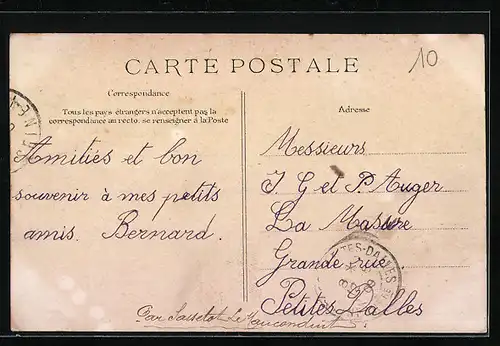 10
CARTE POSTALE
Correspondance
Tous les pays étrangers n'acceptent pas la
correspondance au recto. se renseigner à la Poste
Amitiés et bon
souvenir à mes petits
amis. Bernard.
Adresse
Messieurs
J G et P. Auger
La Masure
Grande rue
Petites Dalles
Par Sassetot Le Mauconduit